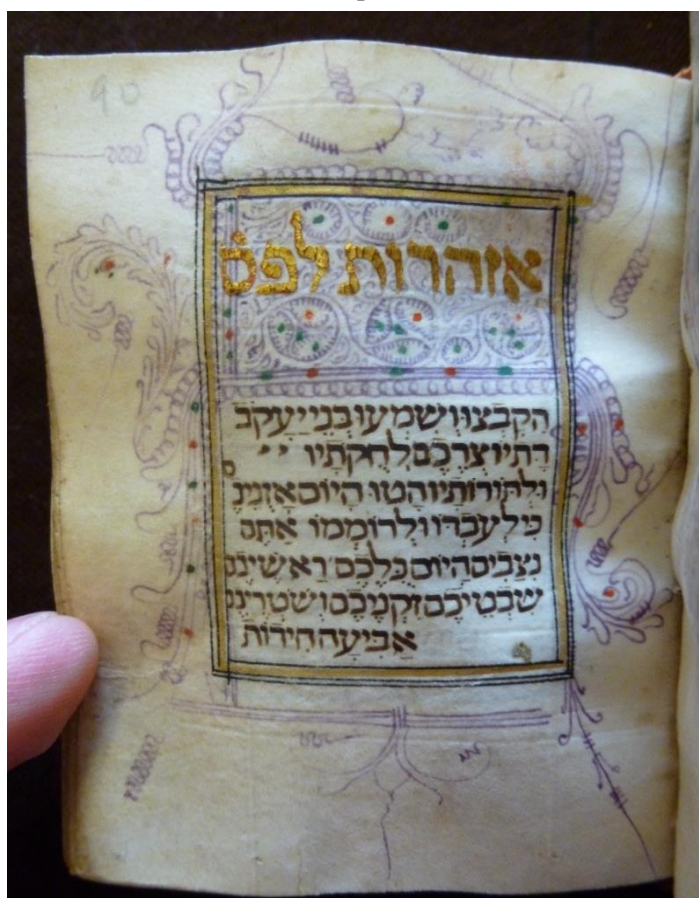 90
אזהרות לפס
הקבצו ושמעו בני יעקב
דתי יוצרכם לחקתיו
ולתורותיו הטו היום אזניכם
כי לעבדו ולרוממו אתם
נצבים היום כלכם ראשיכם
שבטיכם זקניכם ושטריכם
אביעה חידות